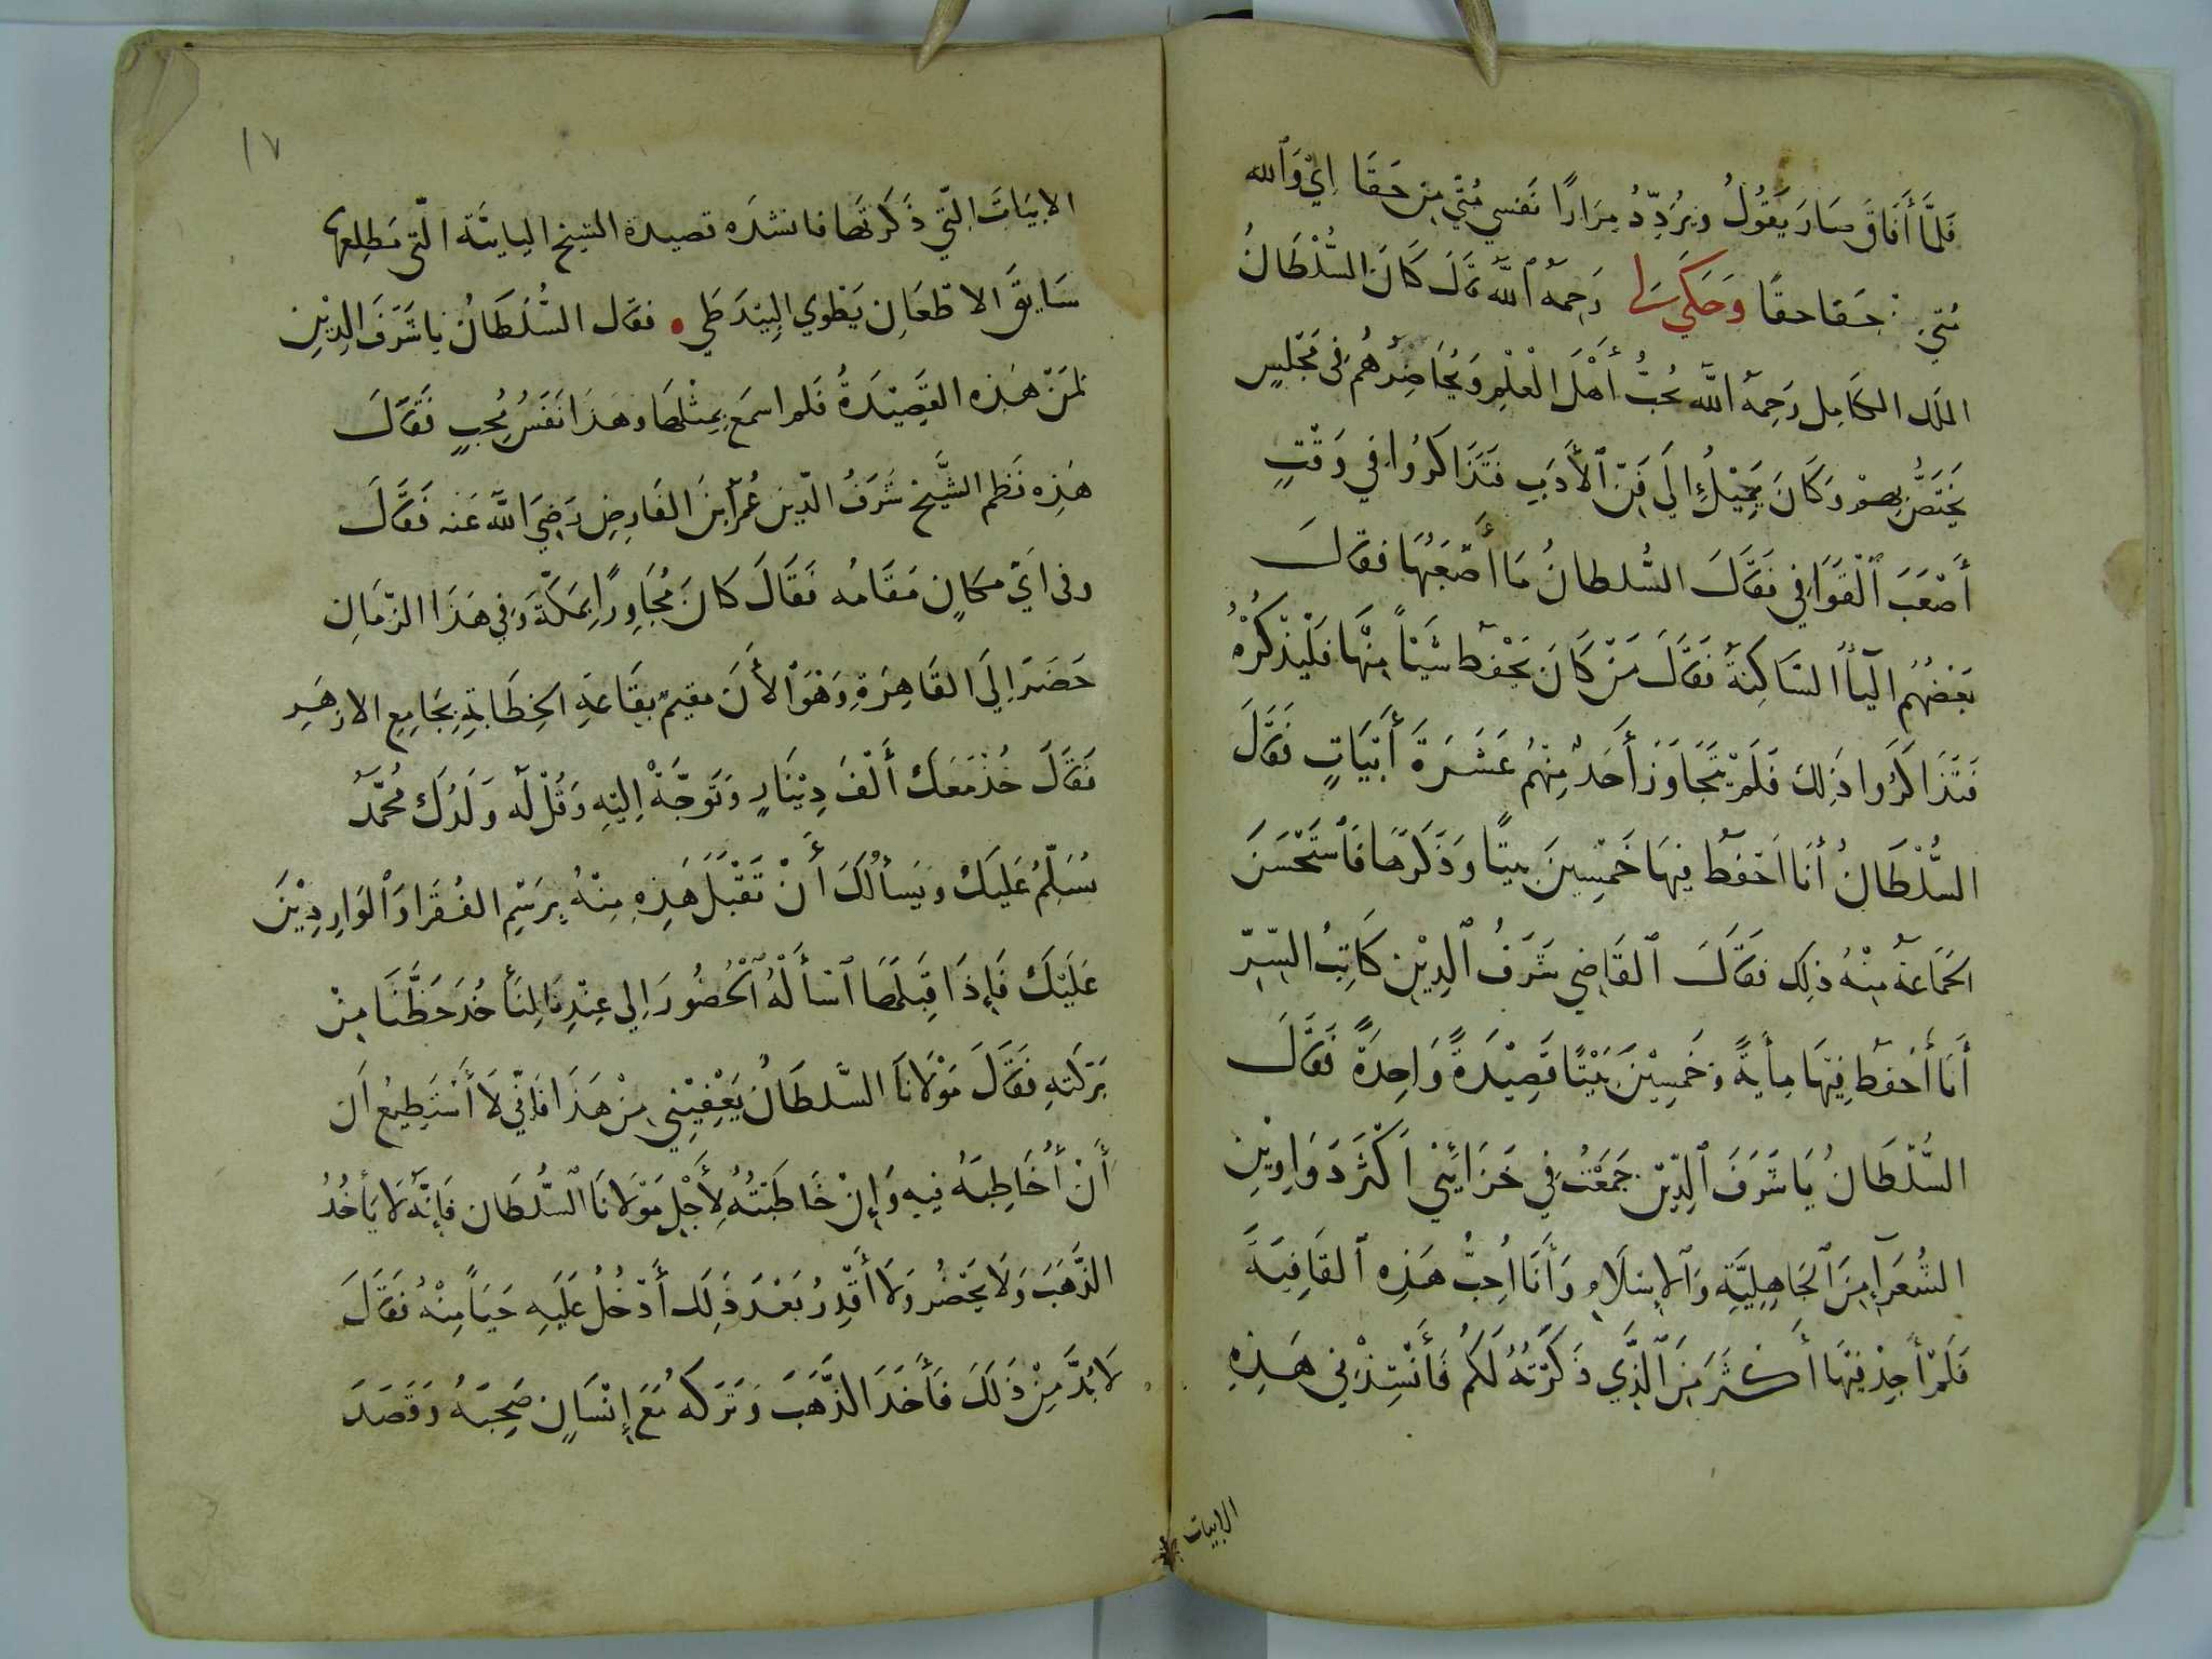 فَلَمَّا أَفَاقَ صَارَ يَقُولُ وَيُرَدِّدُ مِرَارًا نَفسي مُتِّي مِنْ حَقَا اِيْ وَٱلله
مُتّي حَقا حقًا وَحَكَى لى رَحِمَهُ ٱللَّه قَالَ كَانَ السُّلْطَانُ
الملك الكَامِل رَحِمَهُ اللَّه يُحِبُّ أَهْلَ الْعْلِمِ وَيُحَاضِرُهُمْ في مَجْلِسٍ
يَخْتَصُّ بِهِمْ وَكَانَ يَمِيْلُ اِلَى فَنِّ ٱلأَدَبِ فَتَذَاكَرُوا في وَقْتٍ
أَصْعَبَ ٱلْقَوَافي فَقَالَ السُّلطانُ مَا أَصْعَبُهَا فقال
بَعْضُهُم اليَآءُ السَّاكِنَةُ فَقَالَ مَنْ كَانَ يَحْفَظ شَيْئاً مِنْهَا فَلْيَذْكُرْهُ
فَتَذَاكَرُوا ذَلِكَ فَلَمْ يَتَجَاوَزْ أَحَدٌ مِنْهُمْ عَشَرَةَ أَبْيَاتٍ فَقَالَ
السُّلْطَانُ أَنَا اَحْفَظُ فِيهَا خَمْسِينَ بيتًا وَذَكَرَهَا فَٱسْتَحْسَنَ
الجَمَاعَةُ مِنْهُ ذلِكَ فَقَالَ ٱلقَاضِي شَرَفُ ٱلدِيْنِ كَاتِبُ السِّرّ
أَنَا أَحْفَظ فِيْهَا مِأيَةً وَخَمِسِيْنَ بَيْتًا قَصِيْدَةً وَاحِدَةً فَقَالَ
السُّلْطَانُ يَا شَرَفَ ٱلدِّيْنِ جَمَعْتُ فِي خَزَايِني اَكْثَرَ دَوَاوِيْنِ
الشُعَرَآءِ مِنَ ٱلجَاهِلِيَّةِ وَٱلاِسْلَامِ وَأَنَا اُحِبُّ هَذِهِ ٱلقَافِيَةَ
فَلَمْ أَجِدْ فِيْهَا أَكْثَرَ مِنَ ٱلَّذِي ذَكَرْتُهُ لَكُم فَأَنْشِدْنِي هَذِهِ
الابيات
١٧
الابيَاتَ الِّتي ذَكَرتَها فانشَدَه قصيدة الشيخ اليايئَة الَّتي مَطلِعها
سَايقَ الاظْعَان يَطْوي البِيْدَ طَي فَقَال السُّلطَانُ يا شَرَفَ الدِيْنِ
لمَنْ هَذِه القَصِيْدَةُ فَلم اسمَع بِمِثْلهَا وهَذَا نَفَسُ مُحِبٍ فَقَالَ
هَذِه نَظم الشَّيخ شَرَفُ الدّين عُمَرَ ابْنَ الفَارِضِ رَضِيَ اللَّه عَنه فَقَالَ
وفي اَيّ مكَانٍ مَقَامُه فَقَالَ كَانَ مُجَاوِرًا بِمَكّةَ وَفِي هَذَا الزّمَانِ
حَضَرَ اِلَى القَاهِرَةِ وَهُوَ الأَنَ مقيمٌ بقَاعَةِ الخِطَابَةِ بجَامِعِ الازهَرِ
فَقَالَ خُذْ مَعَكَ أَلْفَ دِيْنَارٍ وَتَوَجّهْ اِليْهِ وَقُلْ لَه وَلَدُكَ مُحَمّدٌ
يُسَلِّمُ عَلَيْكَ وَيَسأَلُكَ أَنْ تَقْبَلَ هَذِهِ مِنْهُ بِرَسْمِ الفُقَرَا وَٱلوَارِدِيْنَ
عَلَيْكَ فَإِذَا قَبِلَهَا ٱسْأَلْهُ ٱلْحُضُورَ اِلى عِنْدِنَا لِنَأْخُذَ حَظَّنَا مِنْ
بَرَكَتِهِ فَقَالَ مَوْلَانَا السُّلطَانُ يَعْفِيْني مِنْ هَذَا فَاِنّي لَا أَسْتَطِيعُ اَن
أَنْ أُخَاطِبَهُ فيهِ وَإِنْ خَاطَبْتُهُ لِأَجْلِ مَوْلَانَا ٱلسُّلطَان فَإِنّهُ لَا يَأخُذُ
الذَّهَبَ وَلَا يَحْضُر وَلَا أَقْدِرُ بَعْدَ ذَلِكَ أَدْخُلُ عَلَيْهِ حَيَاءً مِنْهُ فَقَالَ
لَابُدَّ مِنْ ذَلَكَ فَأَخَذَ الذَّهَبَ وَتَرَكَهُ مَعَ إِنْسَانٍ صَحِبَهُ وَقَصَدَ